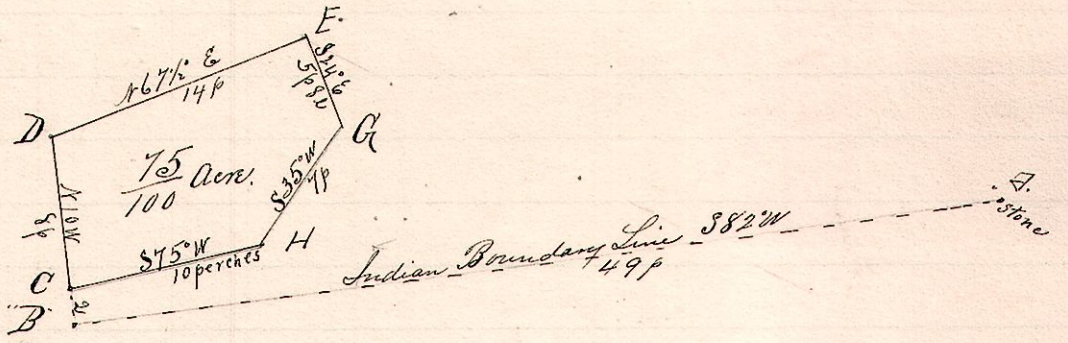 E.
N 67½° E
14 p
S 24° E
D
G
75
100
Acre.
S 35° W
7 p
N 10 W
8 p
S 75° W
10 perches
H
C
B
2
Indian Boundary Line S 82° W
49 p
stone